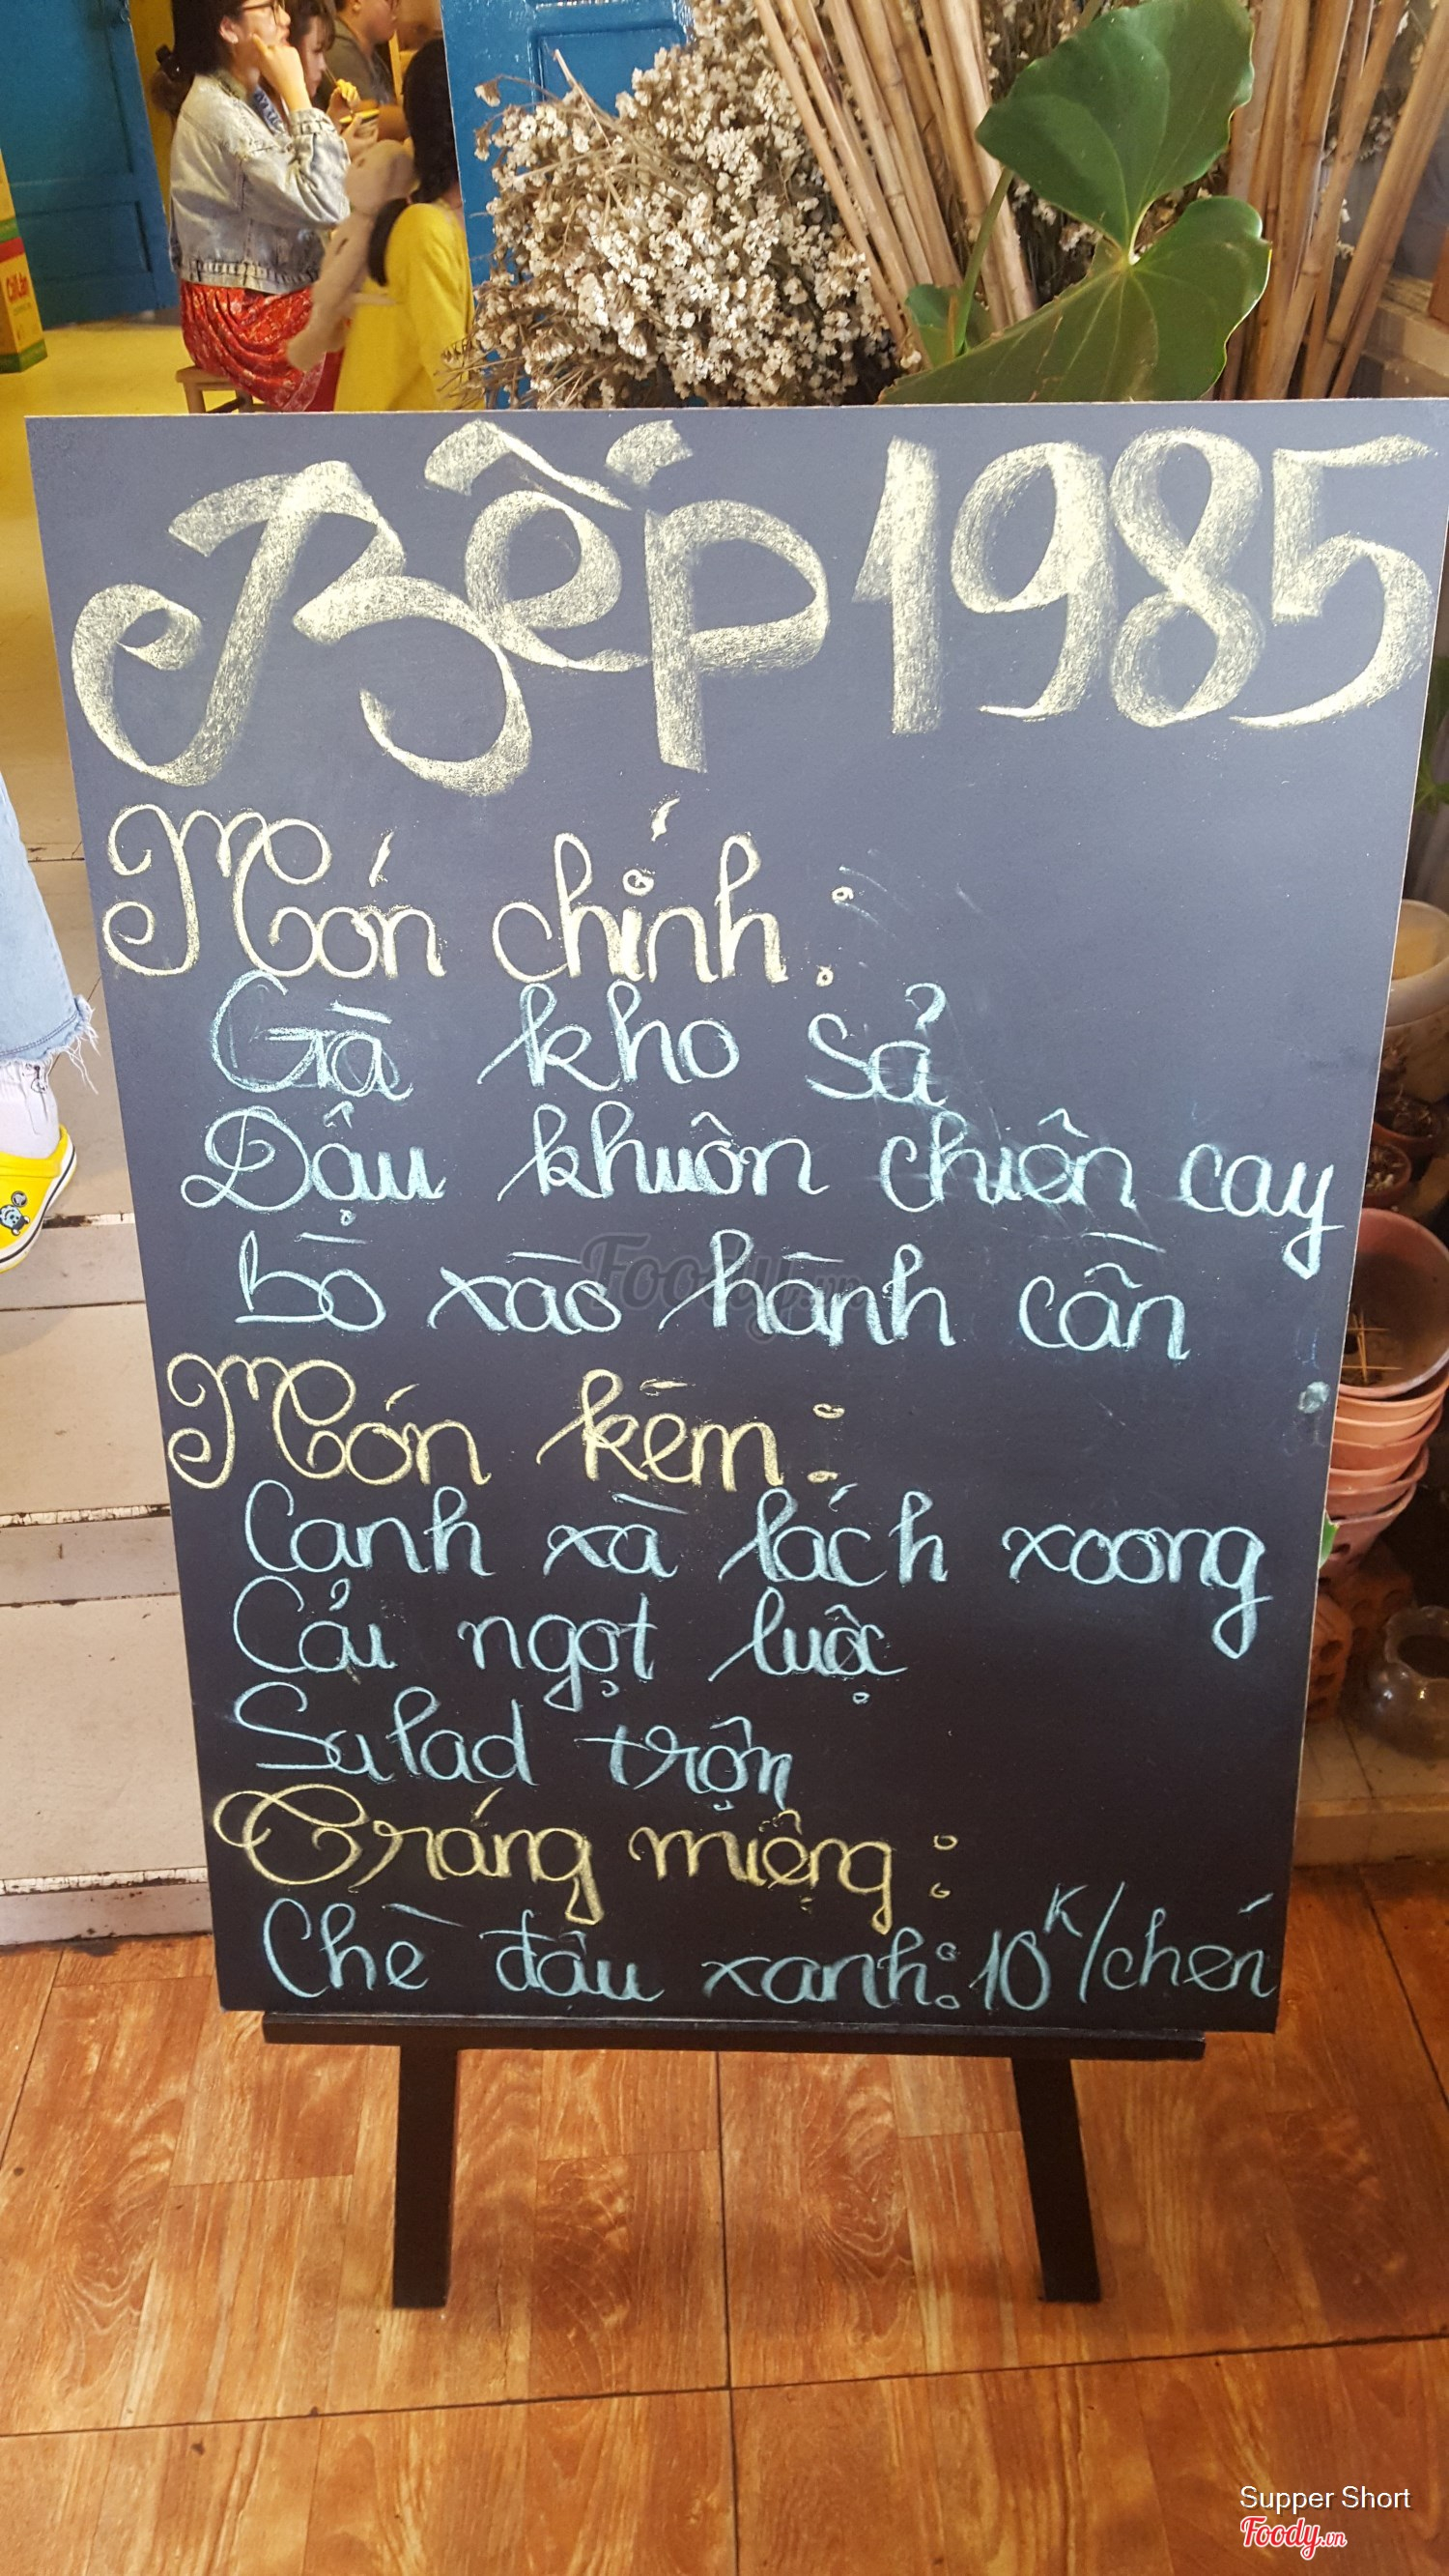 Bếp 1985
Món chính:
Gà kho sả
Đậu khuôn chiên cay
Bò xào hành cần
Món kèm:
Canh xà lách xoong
Cải ngọt luộc
Salad trộn
Tráng miệng:
Chè đậu xanh: 10K/chén
Foody.vn
Supper Short
Foody.vn